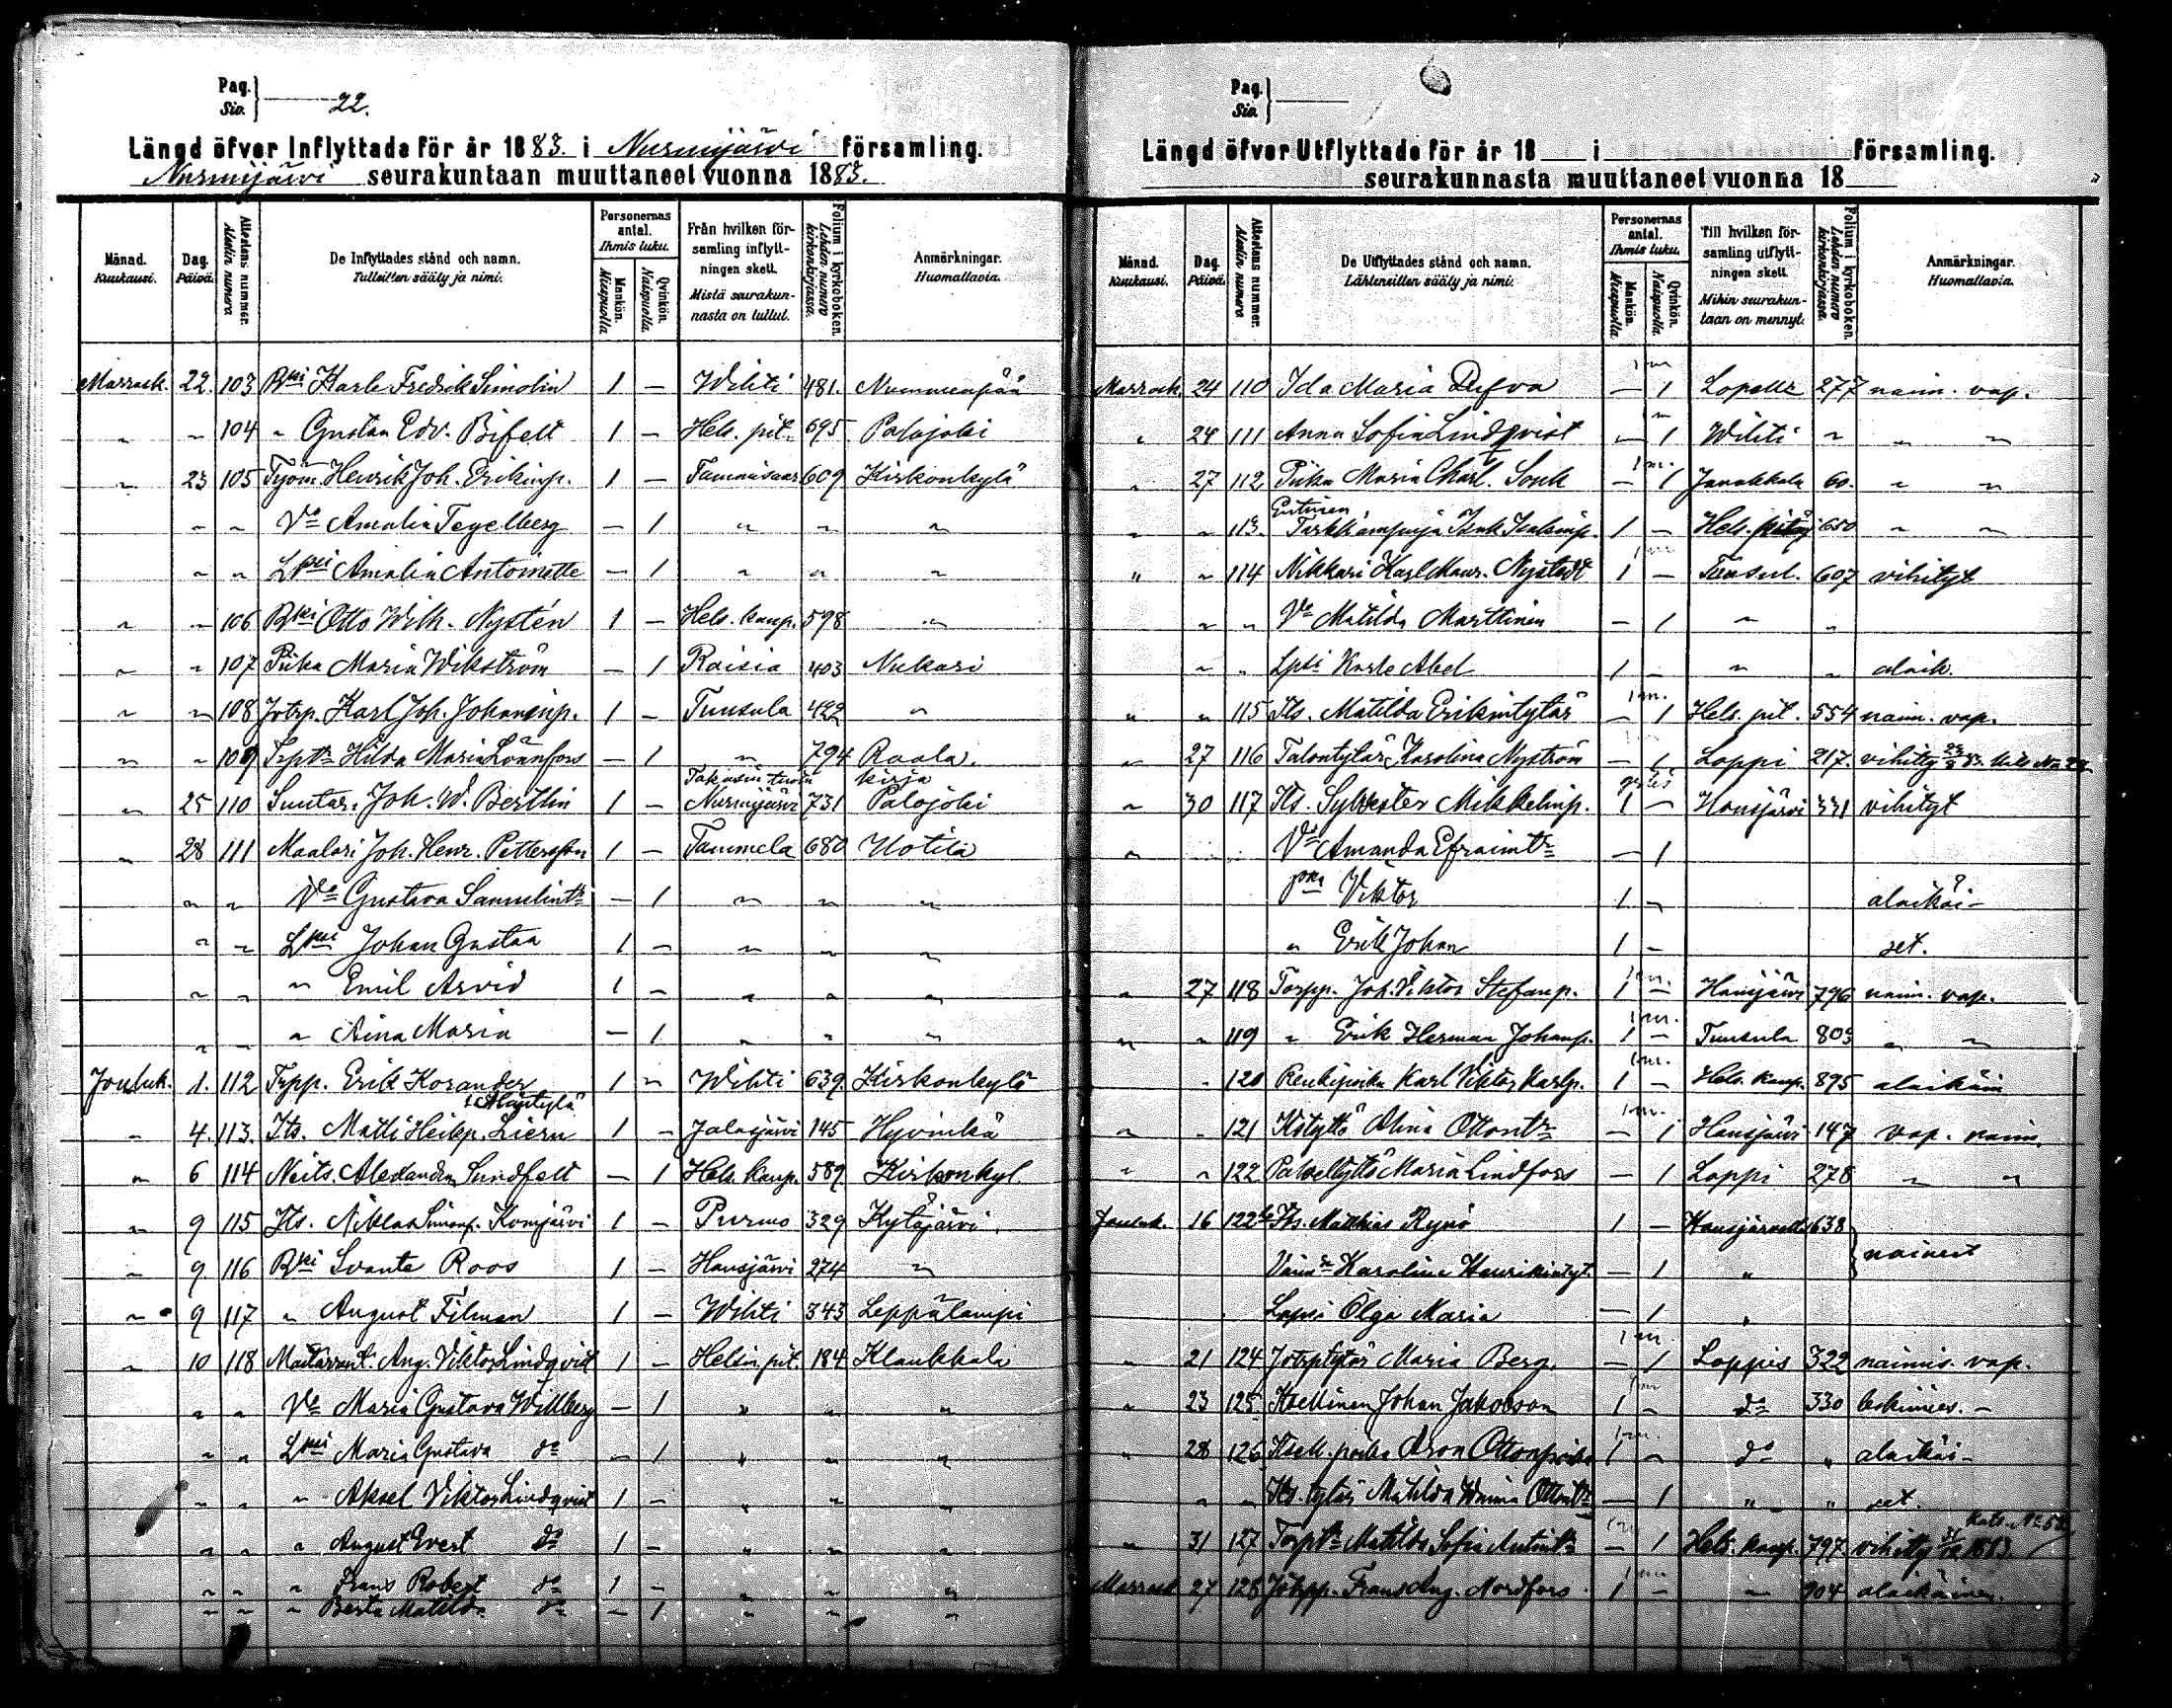 Pag.
Siv. 22.
Längd öfver Inflyttade för år 1883. i Nurmijärvi församling.
Nurmijärvi seurakuntaan muuttaneet vuonna 1883.
Månad. Kuukausi.
Dag. Päivä.
Attestens nummer. Atestin numero
De Inflyttades stånd och namn.
Tulleitten sääty ja nimi.
Personernas antal. Ihmis luku.
Mankön. Miespuolta
Qvinkön. Naispuolta
Från hvilken församling inflyttningen skett.
Mistä seurakunnasta on tullut.
Folium i kyrkoboken. Lehden numero kirkonkirjassa.
Anmärkningar. Huomattavia.
Marrask. 22. 103 Rki Karle Fredrik Simolin 1 — Wihti 481. Nummenpää
" " 104 " Gustav Edv. Bifelt 1 — Hels. pit. 695 Palojoki
" 23 105 Työm. Henrik Joh. Erikinp. 1 — Tammisaar 609 Kirkonkylä
" " Vo Amalia Tegelberg — 1 " " "
" " Lpsi Amalia Antoinette — 1 " " "
" " 106 Rki Otto Wilh. Nystén 1 — Hels. kaup. 598 "
" " 107 Piika Maria Wikström — 1 Raisia 403 Nukari
" " 108 Jotrp. Karl Joh. Johaninp. 1 — Tuusula 422 "
" " 109 Trptr Hilda Maria Lönnfors — 1 " 794 Raala.
Takasin tuotu kirja
" 25 110 Suutar. Joh. W. Berttin 1 — Nurmijärvi 731 Palojoki
" 28 111 Maalari Joh. Henr. Pettersson 1 — Tammela 680 Uotila
" " Vo Gustava Samulintr — 1 " " "
" " Lpsi Johan Gustaa 1 — " " "
" " " Emil Arvid 1 — " " "
" " " Aina Maria — 1 " " "
Jouluk. 1. 112 Trpp. Erik Korander 1 " Wihti 639. Kirkonkylä
" 4. 113. Its. Matti Heikp. 1 — Jalasjärvi 145 Hyvinkä
" 6 114 Neits. Alexandra Sundfelt — 1 Hels. kaup. 589 Kirkonkyl.
" 9 115 Its. Niklas Simonp. Komjärvi 1 — Purmo 329 Kytäjärvi.
" 9 116 Rki Svante Roos 1 — Hausjärvi 274 "
" 9 117 " August Filman 1 — Wihti 343 Leppälampi
" 10 118 Aug. Viktor Lindqvist 1 — Helsin. pit. 184 Klaukkala
" " Vo Maria Gustava Willberg — 1 " " "
" " Lpsi Maria Gustava do — 1 " " "
" " " Aksel Viktor Lindqvist 1 — " " "
" " " August Evert do 1 — " " "
" " " Frans Robert do 1 — " " "
" " " Berta Matilda do — 1 " " "
Pag.
Siv.
Längd öfver Utflyttade för år 18 i församling.
seurakunnasta muuttaneet vuonna 18
Månad. Kuukausi.
Dag. Päivä.
Attestens nummer. Atestin numero
De Utflyttades stånd och namn.
Lähteneitten sääty ja nimi.
Personernas antal. Ihmis luku.
Mankön. Miespuolta
Qvinkön. Naispuolta
Till hvilken församling utflyttningen skett.
Mihin seurakuntaan on mennyt.
Folium i kyrkoboken. Lehden numero kirkonkirjassa.
Anmärkningar. Huomattavia.
Marrask. 24 110 Ida Maria Dufva — 1 Lopelle 277 naim. vap.
" 24 111 Anna Sofia Lindqvist — 1 Wihti " " "
" 27 112 Piika Maria Charl. Sonk — 1 Janakkala 60. " "
Entinen
" " 113. Tarkkampuja Isak Isakinp. 1 — Hels. pitäj 650 " "
" " 114 Nikkari Karl Maur. Nystedt 1 — Tuusul. 607 vihityt
" " Vo Matilda Marttinen — 1 " "
" " Lpsi Karle Abel 1 — " " alaik.
" " 115 Its. Matilda Erikintytär — 1 Hels. pit. 554 naim. vap.
" 27 116 Talontytär Karolina Nyström — 1 Loppi 217. vihitty
" 30 117 Its. Sylvester Mikkelinp. 1 — Hausjärvi 331 vihityt
" Vo Amanda Efraimtr — 1
pka Viktor 1 — alaikäi-
" Erik Johan 1 — set.
" 27 118 Torpp. Joh. Viktor Stefanp. 1 — Hausjärvi 796 naim. vap.
" " 119 " Erik Herman Johanp. 1 — Tuusula 803 " "
" 120 Renkipoika Karl Viktor Karlp. 1 — Hels. kaup. 895 alaikäin
" " 121 Itstyttö Alina Ottontr — 1 Hausjärvi 147 vap. naim.
" " 122 Palveltyttö Maria Lindfors — 1 Loppi 278 " "
Jouluk. 16 122½ Its. Matthias Rynö 1 — Hausjärvelle 638
Vaimo Karolina Henrikintyt. — 1 " naineet
Lapsi Olga Maria — 1 "
" 21 124 Jotrptytär Maria Berg. — 1 Loppis 322 naimis. vap.
" 23 125 Itsellinen Johan Jakobson 1 — do 330 leskimies. —
" 28 126 Itsell. poika Aron Ottonpoika 1 — do " alaikäi-
" " Its. tytär Matilda Wainä Ottontr — 1 " " set.
" 31 127 Torptr Matilda Sofia Antintr — 1 Hels. kaup. 797 vihitty
Marrask 27 128 Jotrpp. Frans Aug. Nordfors 1 — " 904 alaikäinen.